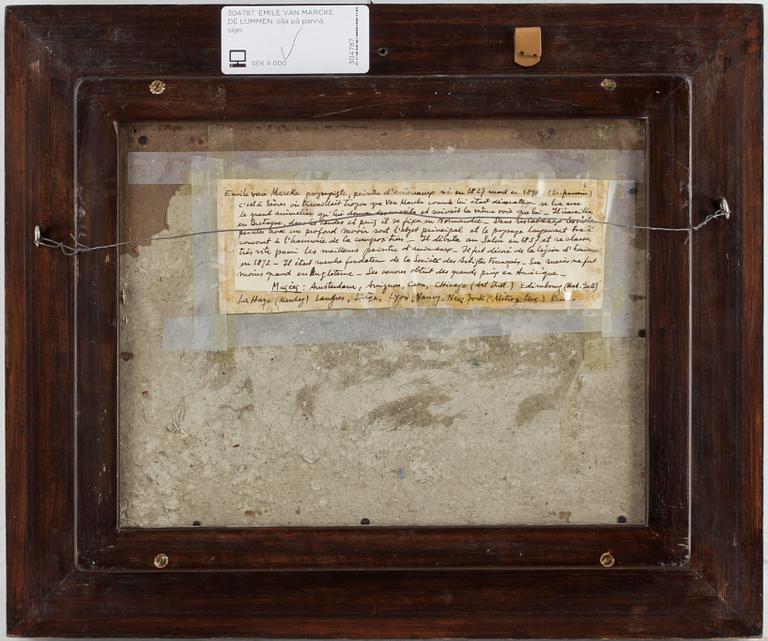 304787. EMILE VAN MARCKE
DE LUMMEN, olja på pannå,
sign.
SEK 4 000
304787
Emile van Marcke paysagiste, peintre d'animaux né en 1827 mort en 1890
c'est à Sèvres où travaillait Troyon que Van Marcke comme lui était décorateur se lia avec
le grand animalier qui lui donna des conseils et suivait la même voie que lui _ Il travailla
en Bretagne, dans les Landes et puis il se fixa en Normandie _ Dans
peintes avec un profond savoir sont l'objet principal et le paysage largement traité
concourt à l'harmonie de la composition _ Il débuta au Salon en 1857 et se classa
très vite parmi les meilleurs peintres d'animaux _ Il fut décoré de la légion d'honneur
en 1872 _ Il était membre fondateur de la Société des Artistes Français _ Son succès ne fut
moins grand en Angleterre _ Ses oeuvres obtint des grands prix en Amérique _
Musées : Amsterdam, Avignon, Caen, Chicago (Art Inst.) Edimbourg (Nat. Gall)
La Haye (Mesdag) Langres, Liège, Lyon, Nancy, New York (Metrop. Mus.)